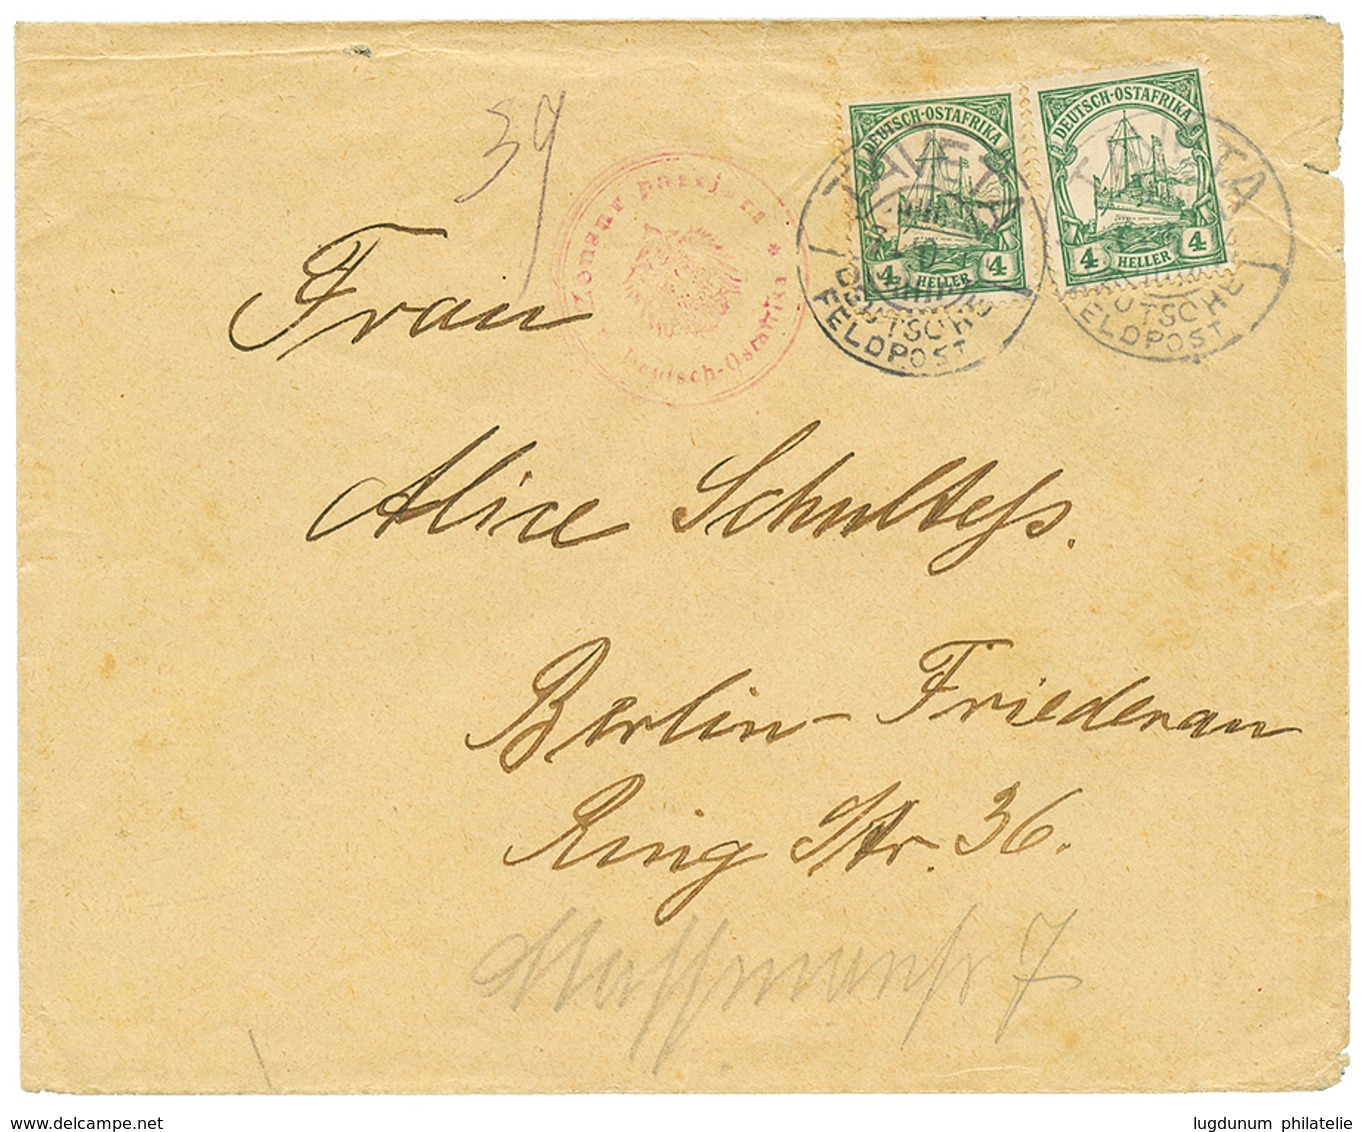 39
DEUTSCH-OSTAFRIKA
4 HELLER 4
DEUTSCH-OSTAFRIKA
4 HELLER 4
TAVETA
DEUTSCHE
FELDPOST
TAVETA
DEUTSCHE
FELDPOST
Zensur passiert *
Deutsch-Ostafrika
Frau
Alice Schultess.
Berlin-Friedenau
Ring Str. 36.
7
www.delcampe.net
lugdunum philatelie